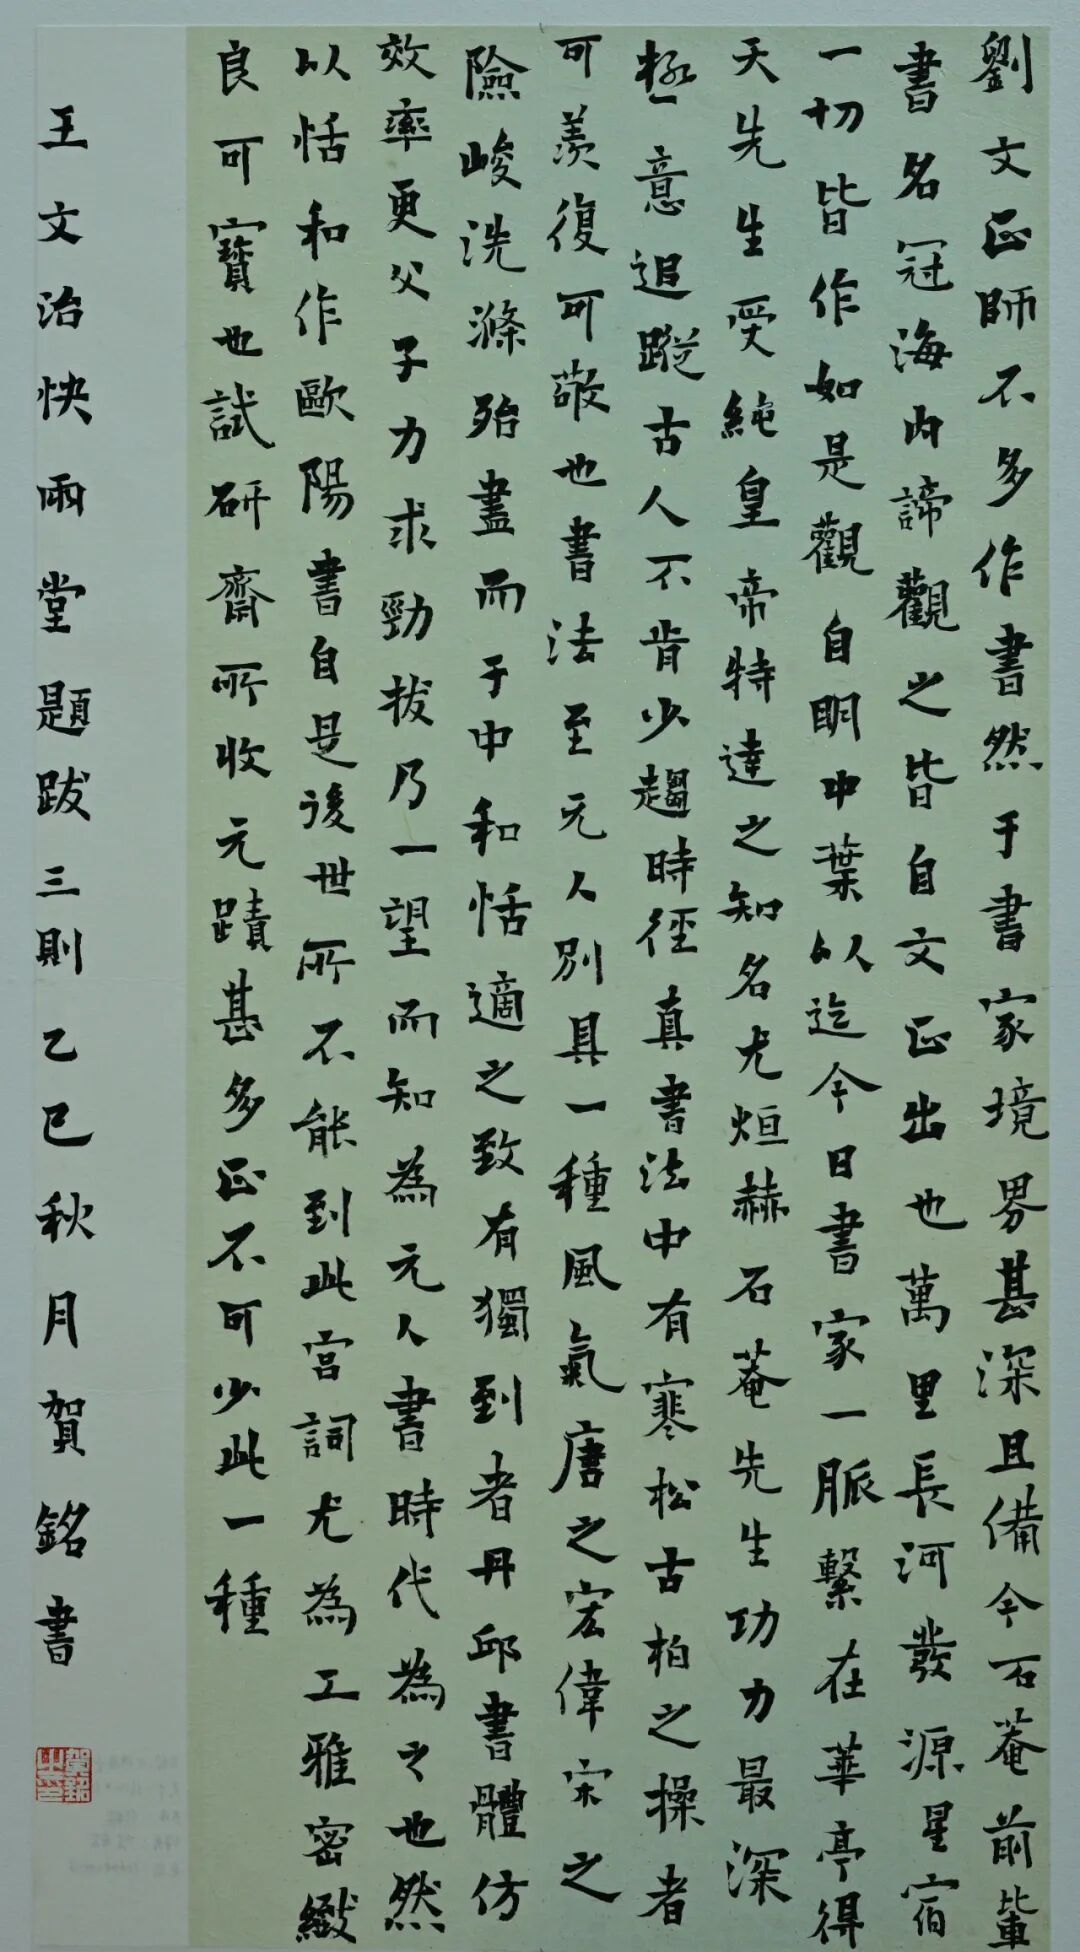 劉文正師不多作書然于書家境界甚深且備今石菴前輩
書名冠海内諦觀之皆自文正出也萬里長河發源星宿
一切皆作如是觀自明中葉以迄今日書家一脈繫在華亭得
天先生受純皇帝特達之知名尤烜赫石菴先生功力最深
極意追蹤古人不肯少趨時徑真書法中有寒松古柏之操者
可羨復可敬也書法至元人別具一種風氣唐之宏偉宋之
險峻洗滌殆盡而于中和恬適之致有獨到者丹邱書體仿
效率更父子力求勁拔乃一望而知為元人書時代為之也然
以恬和作歐陽書自是後世所不能到此宮詞尤為工雅密緻
良可寶也試研齋所收元蹟甚多正不可少此一種
王文治快雨堂題跋三則乙巳秋月賀銘書